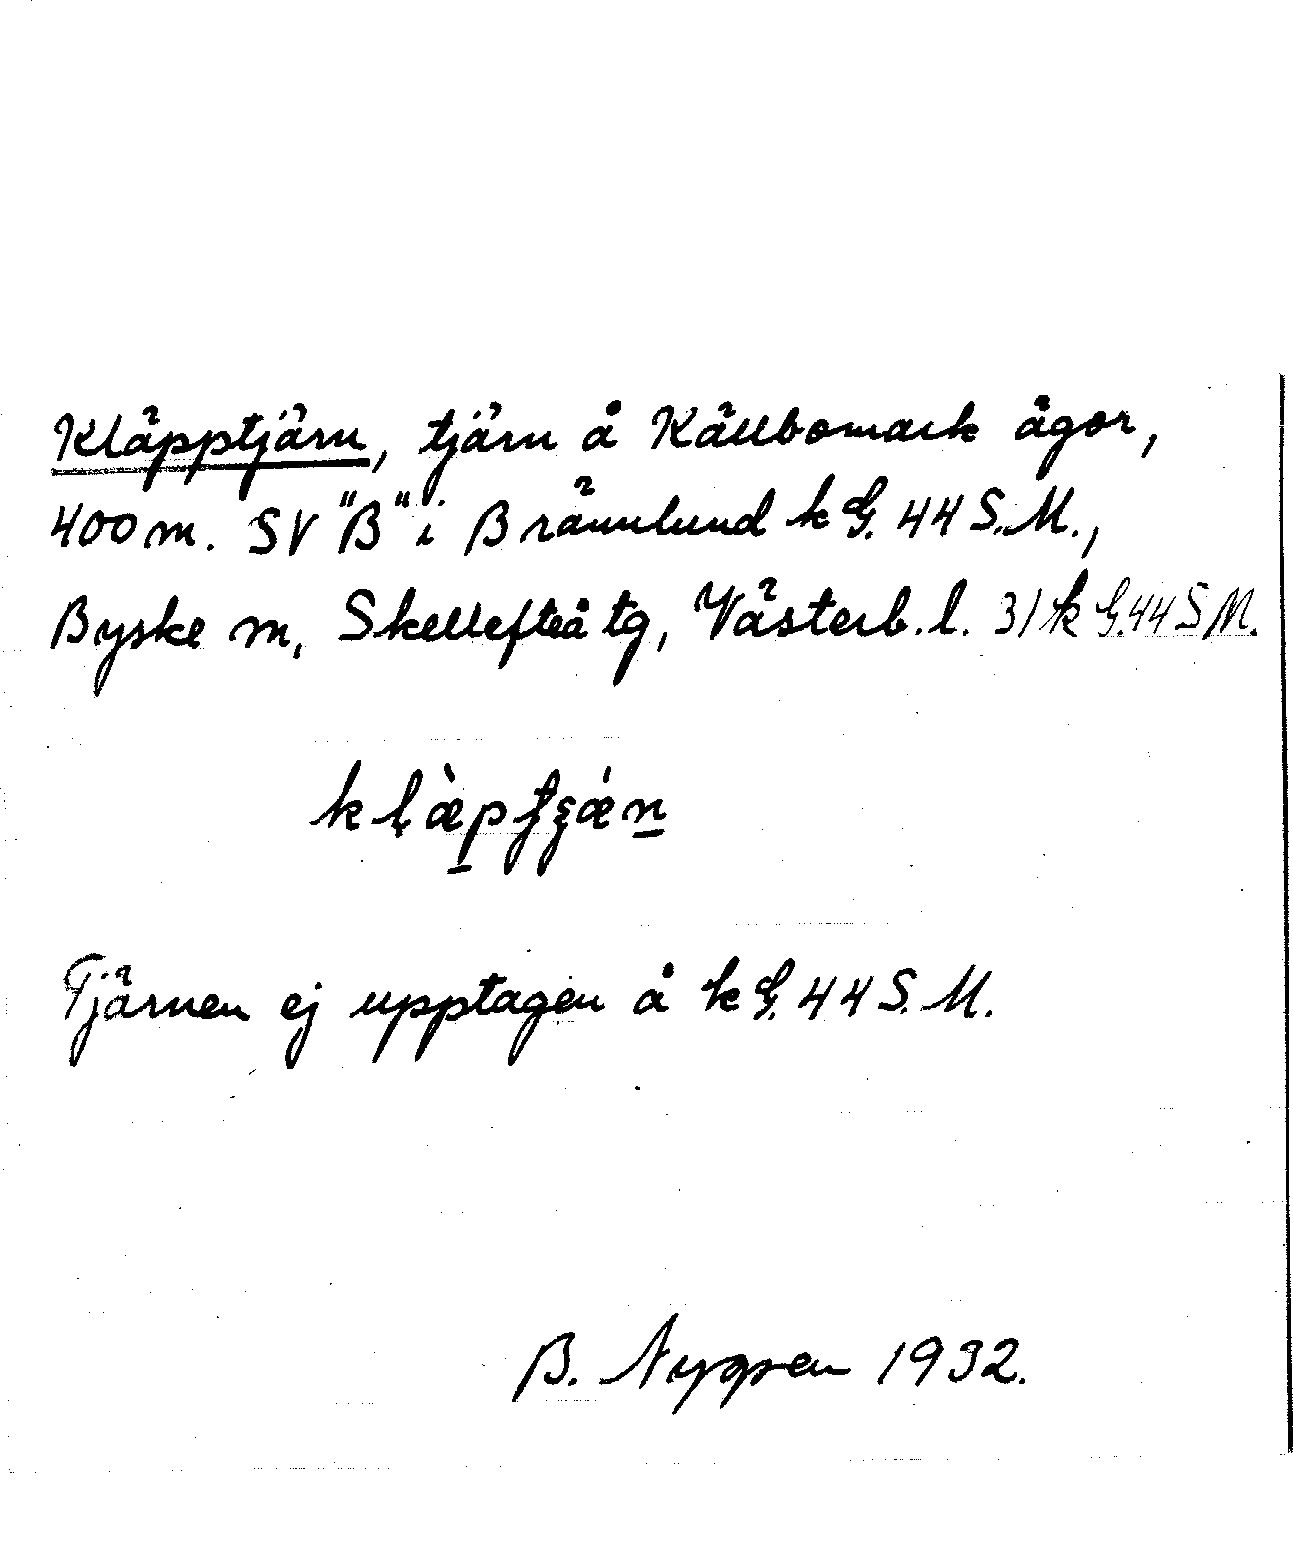 Kläpptjärn, tjärn å Källbomark ägor,
400 m. SV "B" i Brännlund k G. 44 S.M.,
Byske m, Skellefteå tg, Västerb. l. 31 k G.44 S M.
Tjärnen ej upptagen å k G. 44 S. M.
B. Nygren 1932.